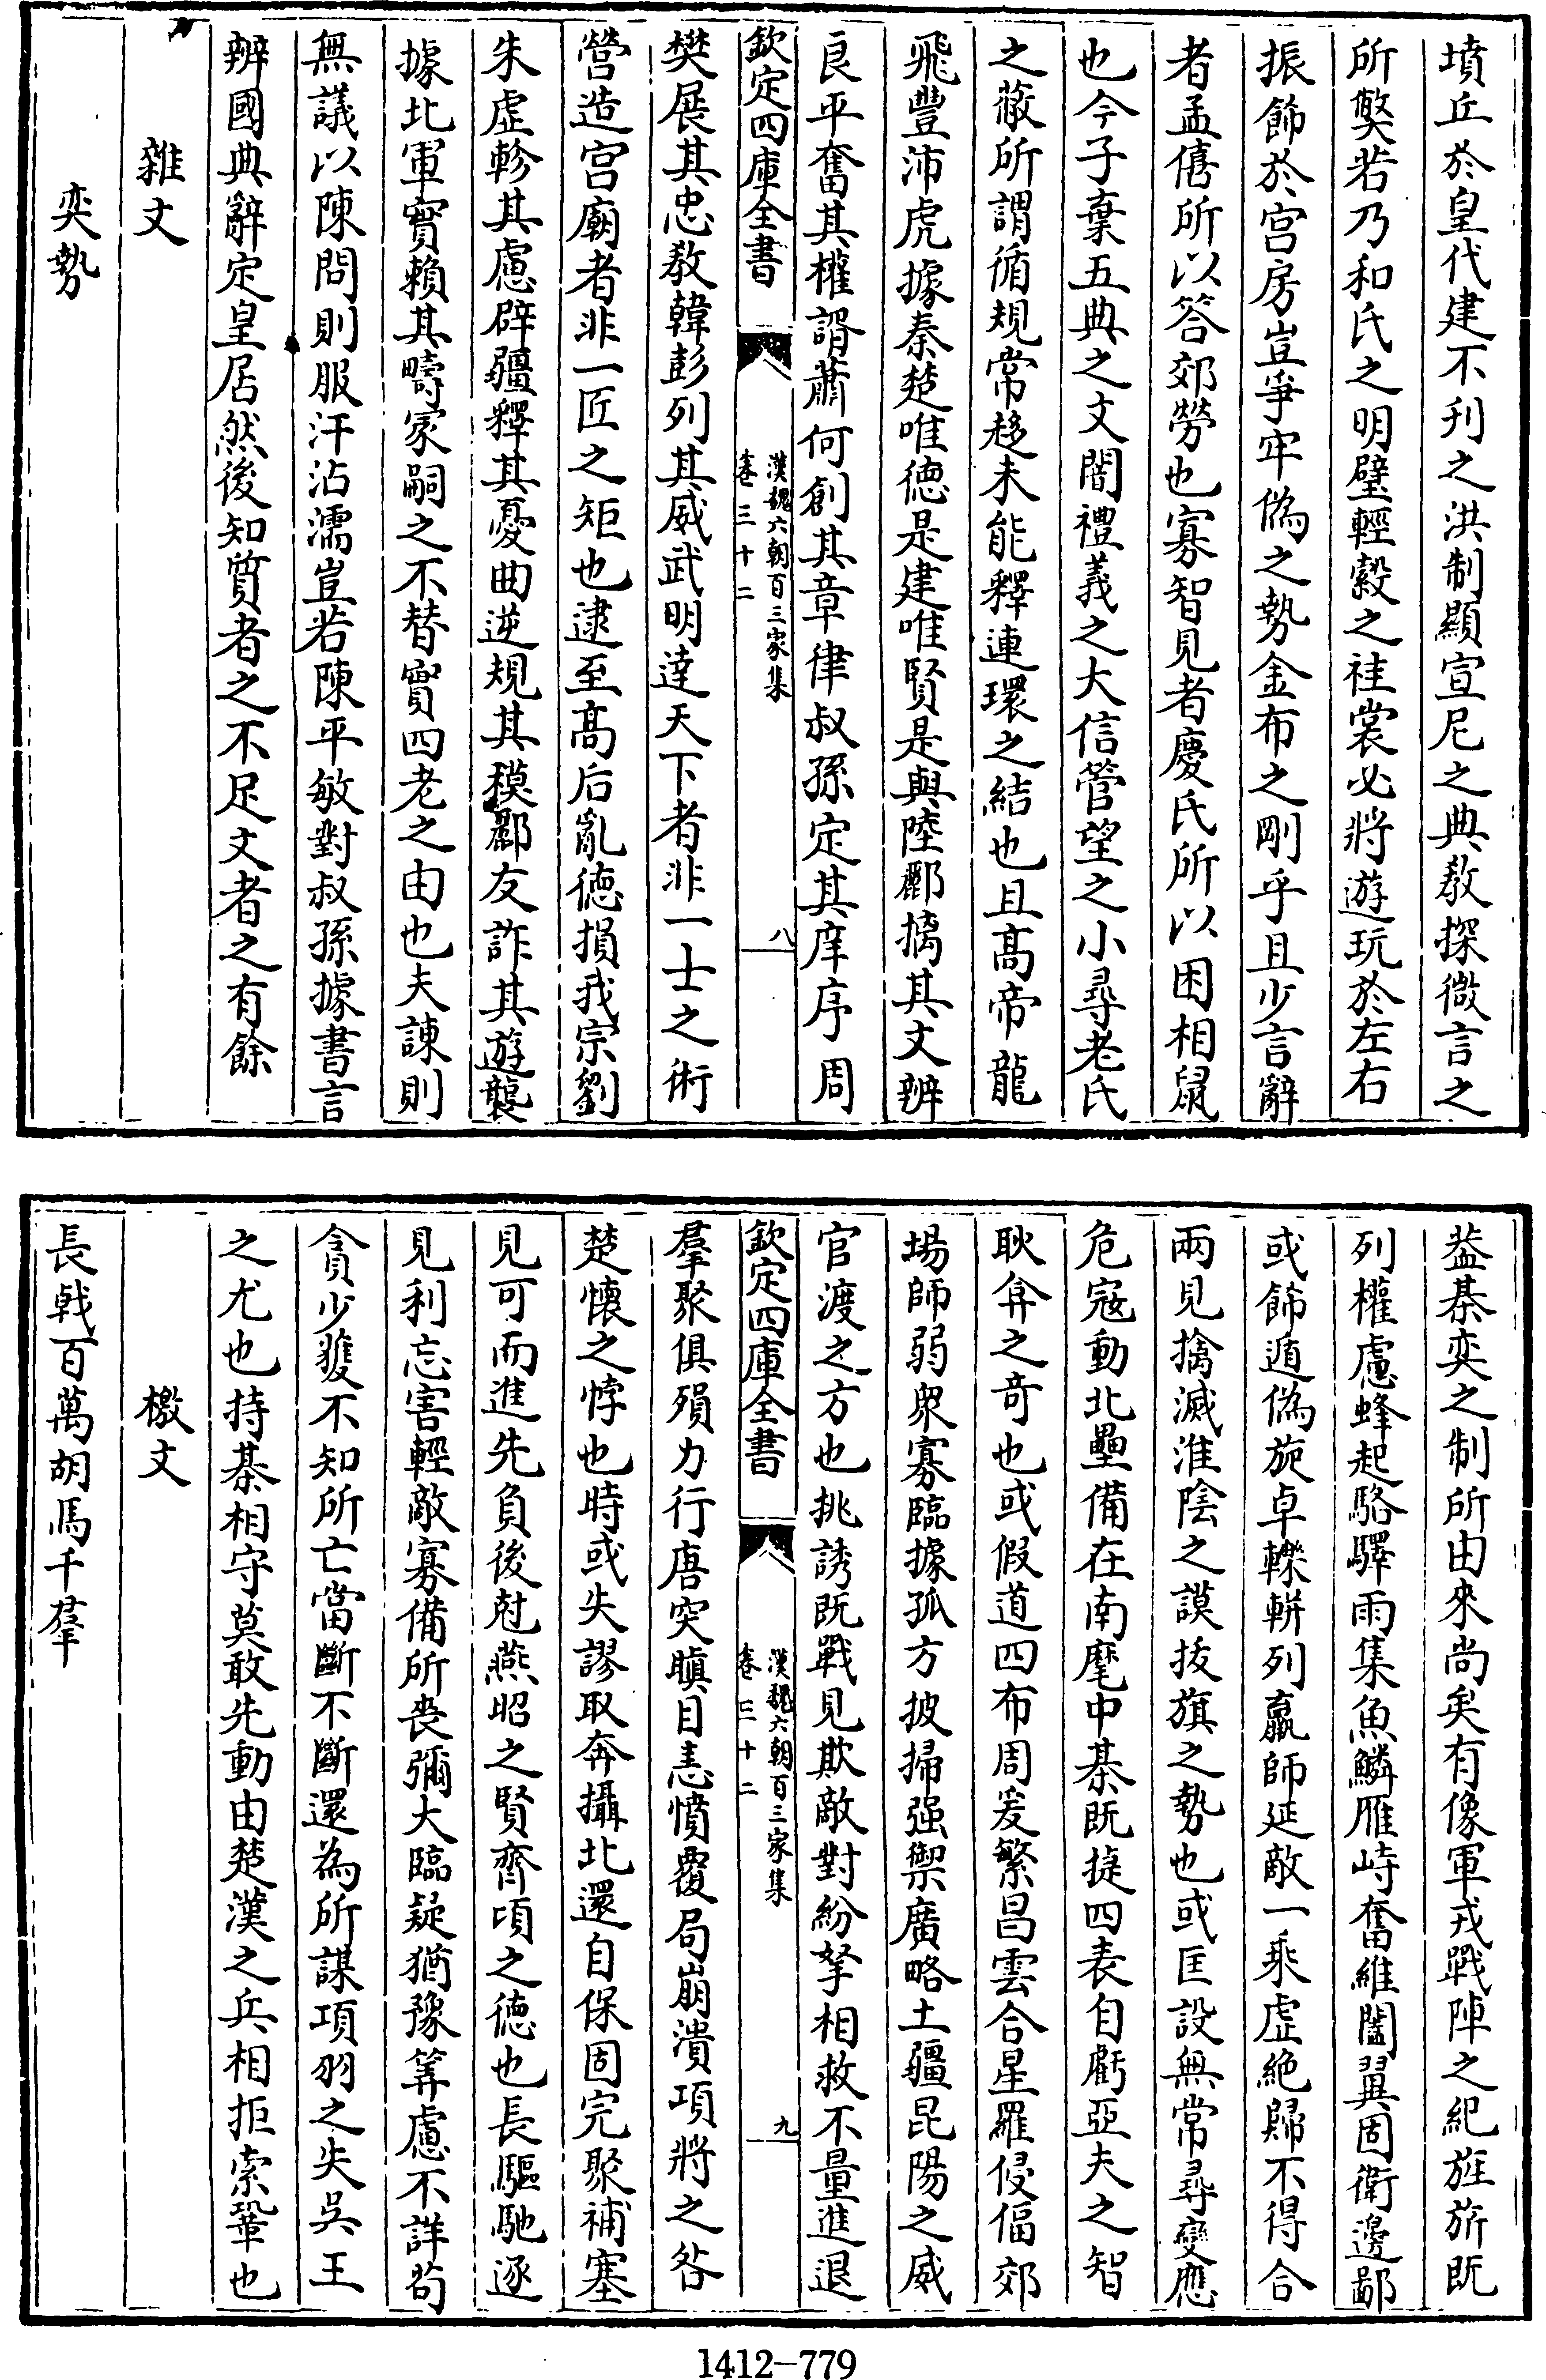 墳丘於皇代建不刋之洪制顯宣尼之典教探微言之
所弊若乃和氏之明璧輕縠之袿裳必將遊玩於左右
振飾於宫房豈爭牢偽之勢金布之剛乎且少言辭
者孟僖所以答郊勞也寡智見者慶氏所以困相鼠
也今子棄五典之文闇禮義之大信管望之小尋老氏
之蔽所謂循規常趍未能釋連環之結也且髙帝龍
飛豐沛虎據秦楚唯徳是建唯賢是與陸酈摛其文辨
良平奮其權諝蕭何創其章律叔孫定其庠序周
欽定四庫全書
漢魏六朝百三家集
卷三十二
八
樊展其忠教韓彭列其威武明達天下者非一士之術
營造宫廟者非一匠之矩也逮至髙后亂徳損我宗劉
朱虛軫其慮辟疆釋其憂曲逆規其模酈友詐其遊襲
據北軍實賴其疇冢嗣之不替實四老之由也夫諫則
無議以陳問則服汗沾濡豈若陳平敏對叔孫據書言
辨國典辭定皇居然後知質者之不足文者之有餘
雜文
奕勢
葢棊奕之制所由來尚矣有像軍戎戰陣之紀旌旂既
列權慮蜂起駱驛雨集魚鱗雁峙奮維闔翼固衛邊鄙
或飾遁偽旋卓轢軿列羸師延敵一乘虛絶歸不得合
兩見擒滅淮陰之謨拔旗之勢也或匡設無常尋變應
危寇動北壘備在南麾中棊既捷四表自虧亞夫之智
耿弇之竒也或假道四布周爰繁昌雲合星羅侵偪郊
場師弱衆寡臨據孤方披掃强禦廣略土疆昆陽之威
官渡之方也挑誘既戰見欺敵對紛挐相救不量進退
欽定四庫全書
漢魏六朝百三家集
卷三十二
九
羣聚俱殞力行唐突瞋目恚憤覆局崩潰項將之咎
楚懷之悖也時或失謬收奔攝北還自保固完聚補塞
見可而進先負後尅燕昭之賢齊頃之徳也長驅馳逐
見利忘害輕敵寡備所喪彌大臨疑猶豫筭慮不詳茍
貪少獲不知所亡當斷不斷還為所謀項羽之失吳王
之尤也持棊相守莫敢先動由楚漢之兵相拒索鞏也
檄文
長㦸百萬胡馬千羣
1412-779